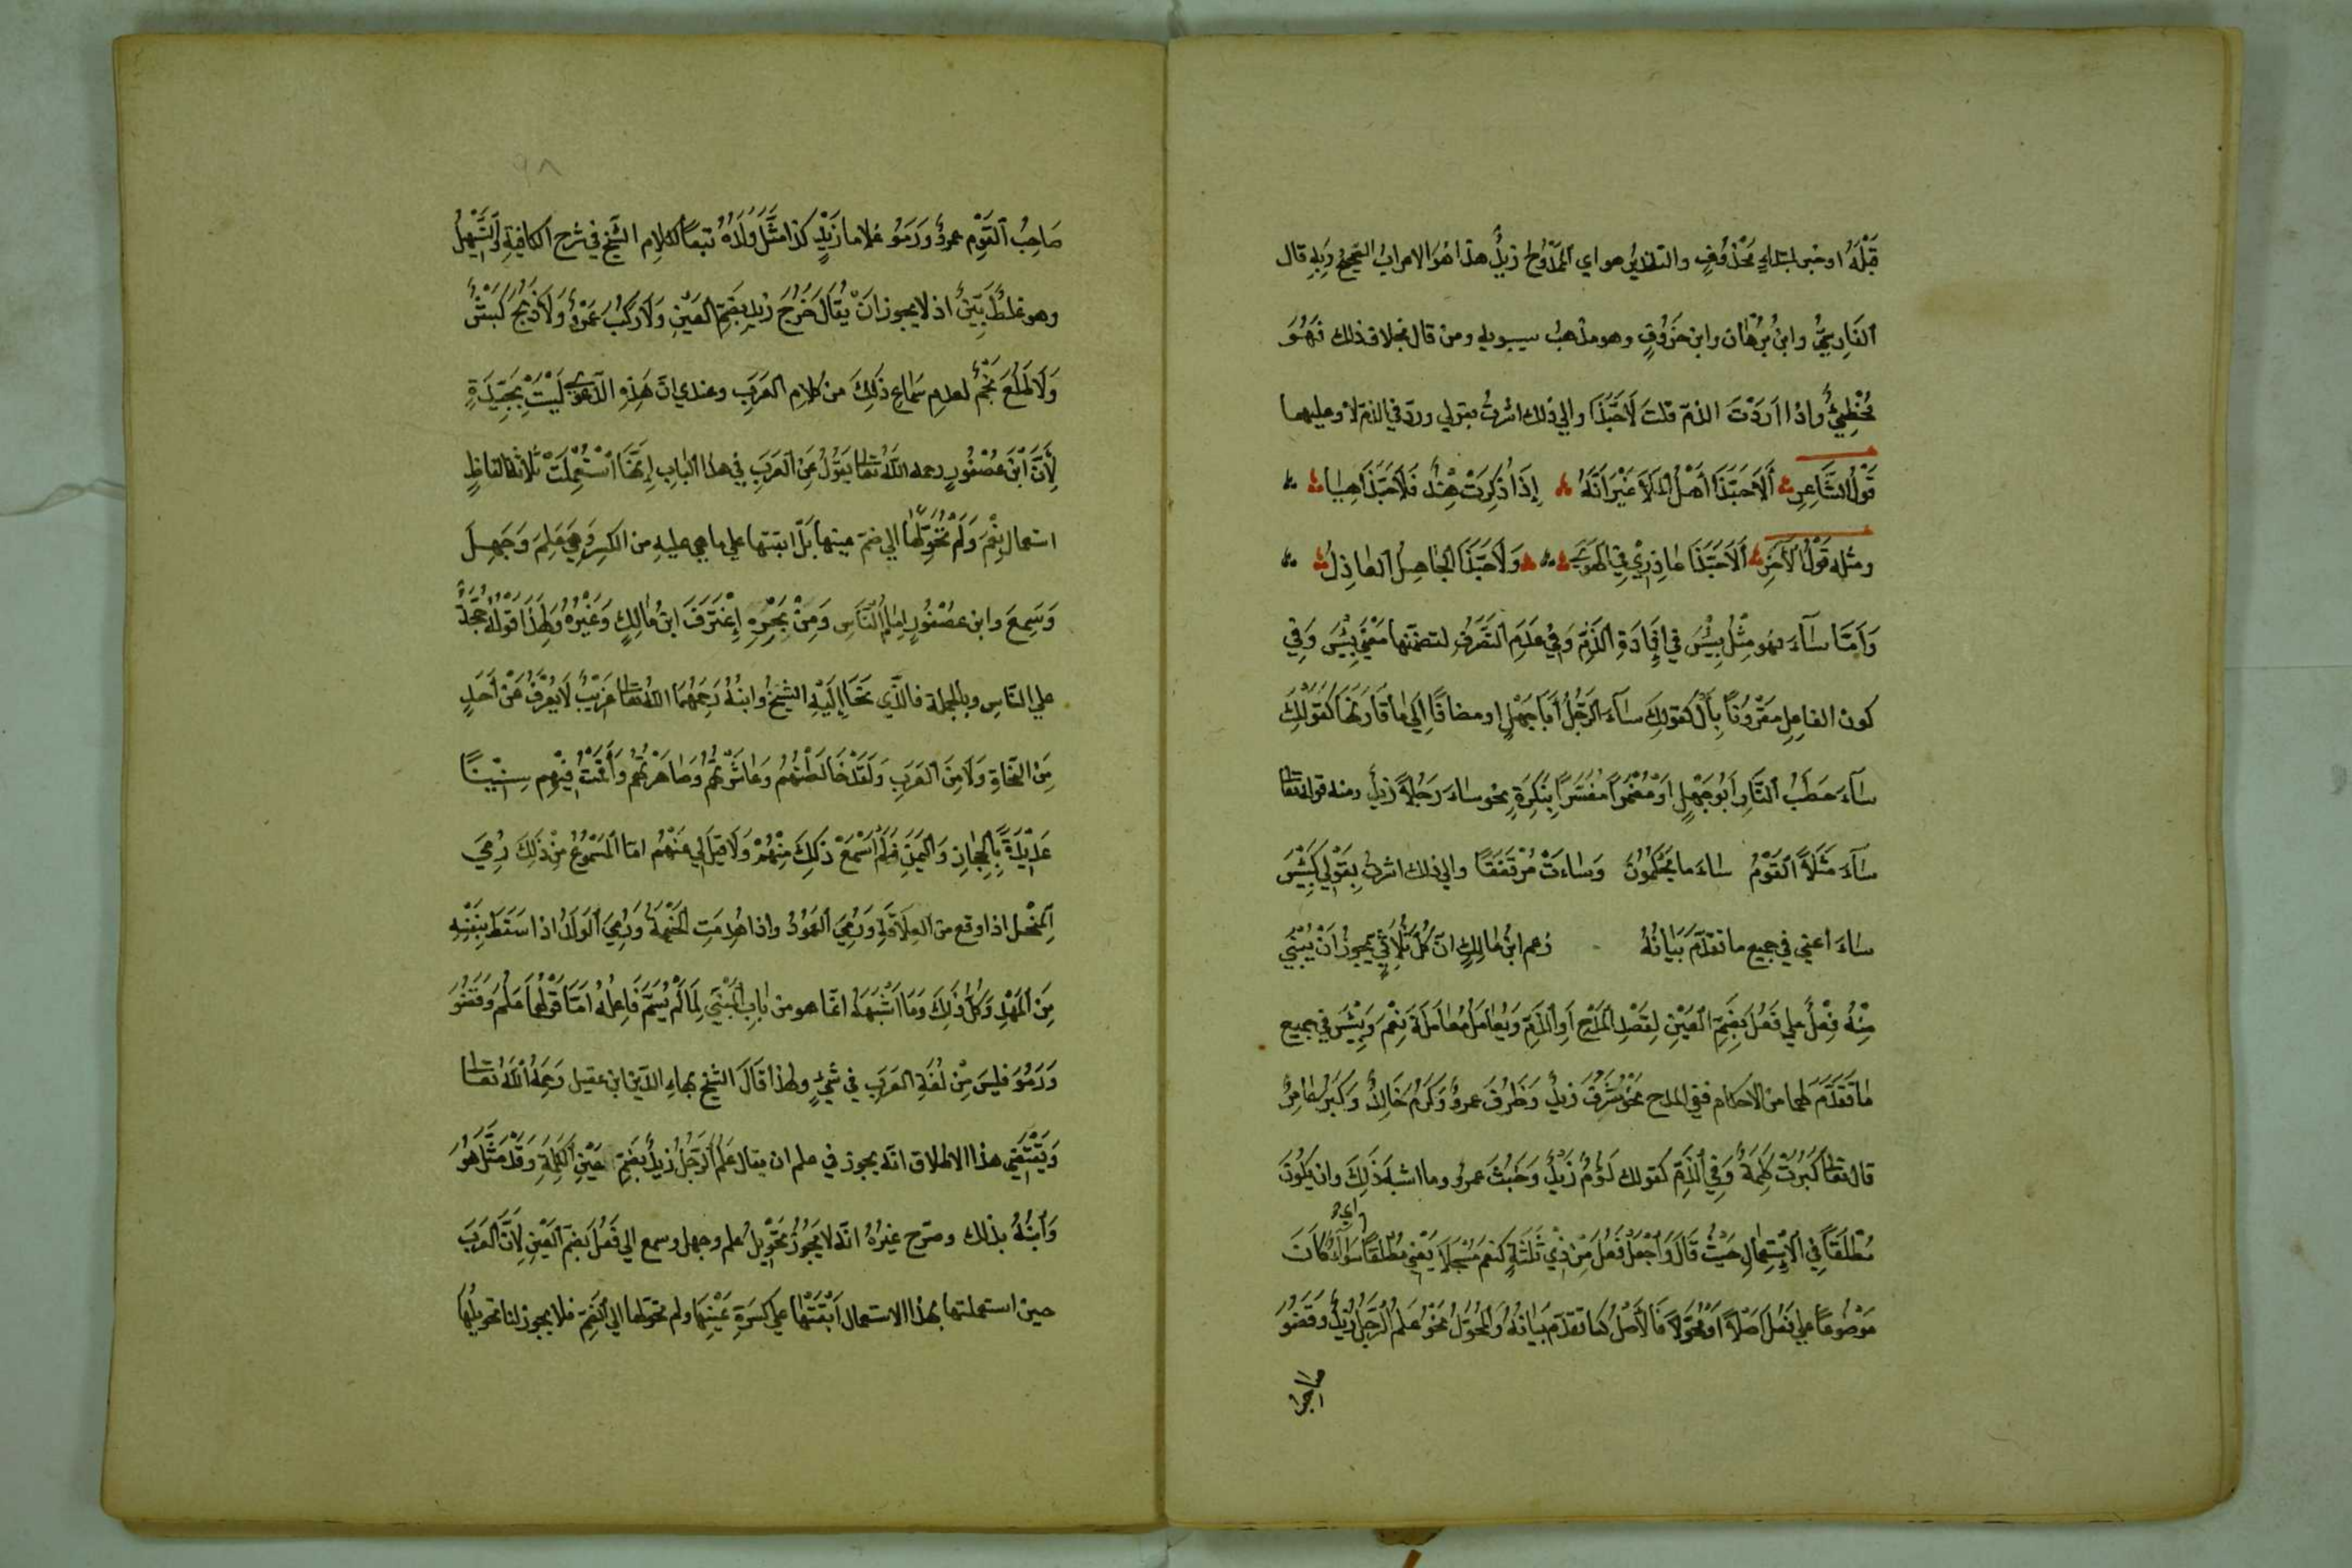 قَبْلَهُ او خبر لمبتداءٍ مَحْذُوفٍ والتقدير هو اي المَمْدُوحُ زيدٌ هذا هُوَ الاعرابُ الصّحيحُ وَبِهِ قال
الفَارِسِيُّ وابنُ بُرْهَان وابن خَرُوفٍ وهو مذهبُ سيبويه ومن قال بخلاف ذلك فَهُوَ
مُخْطِئٌ واذا اَرَدْتَ الذمّ قلتَ لَا حَبَّذَا والي ذلك اشرتُ بقولي وردّ في الذمّ لا وعليهما
قَوْلُ الشَّاعِرِ أَلَا حَبَّذَا أَهْلُ المَلَا غَيْرَ أَنَّهُ إِذَا ذُكِرَتْ هِنْدٌ فَلَا حَبَّذَا هِيَا
ومثله قَوْلُ الآخَرِ أَلَا حَبَّذَا عَاذِرِيْ فِي الهَوَى وَلَا حَبَّذَا الجَاهِلُ العَاذِلُ
وَاَمَّا سَآءَ فهو مِثْلُ بِئْسَ في اِفَادَةِ الذَّمِّ وَفِي عَدَمِ التَّصَرُّفِ لتضمّنها مَعْنَي بِئْسَ وَفِي
كون الفاعِلِ مَعْرُوفًا بِأَلْ كَقولِكَ سَآءَ الرَّجُلُ أَبَا جَهْلٍ او مضافًا اِلَى مَا قَارَنَهَا كَقَوْلِكَ
سَآءَ حَطَبُ النَّارِ أَبُو جَهْلٍ اَوْ مُضْمَرًا مُفَسَّرًا بِنَكِرَةٍ نحو سَاءَ رَجُلًا زيدٌ ومنه قوله تعالى
سَآءَ مَثَلًا القَوْمُ سَاءَ ما يَحْكُمُونَ وَسَاءَتْ مُرْتَفَقًا والي ذلك اشرتُ بِقَوْلِي كَبِئْسَ
سَاءَ أعني في جميع ما تقدَّمَ بَيَانُهُ زعم ابنُ مَالِكٍ انّ كُلَّ ثُلَاثِيٍّ يَجوزُ اَنْ يُبْنَي
مِنْهُ فِعْلٌ علي فَعُلَ بِضَمِّ العَيْنِ لِقَصْدِ المَدْحِ اَوِ الذَّمِّ وَيُعَامَلُ مُعَامَلَةَ نِعْمَ وَبِئْسَ في جميع
مَا تَقَدَّمَ لهما من الاحكام ففي المدح نَحْوُ شَرُفَ زيدٌ وَظَرُفَ عمرٌو وَكَرُمَ خَالِدٌ وَكَبُرَ عَامِرٌ
قال تعالى كَبُرَتْ كَلِمَةً وَفِي الذَّمِّ كقولك لَؤُمَ زَيْدٌ وَخَبُثَ عمرٌو وما اشبه ذَلِكَ وان يَكُونَ
اي
مُطْلَقًا فِي الاِسْتِعْمَالِ حَيْثُ قَالَ وَاجْعَلْ فَعُلَ مِنْ ذِيْ ثَلَثَةٍ كنعم مُسْجَلًا يَعْنِي مُطْلَقًا سَوَآءٌ كَانَ
مَوْضُوعًا علي فَعُلَ اَصْلًا اَوْ مُحَوَّلًا فَالأَصْلُ كَمَا تقَدَّم بَيَانُهُ وَالمُحَوَّلُ نَحْوُ عَلُمَ الرَّجُلُ زَيْدٌ وَقَضُوَ
صاحب
٩٨
صَاحِبُ القَوْمِ عمرٌو وَرَمُوَ غلاما زَيْدٍ كَذا مَثَّلَ وَلَدُهُ تبعًا لكلام الشّيخ في شرح الكافيةِ وَالتَّسْهِيلِ
وهو غلطٌ بَيِّنٌ اذ لا يجوز انْ يُقَالَ خَرُجَ زيدٌ بِضَمِّ العَيْنِ وَلَا رَكُبَ عَمْرٌو وَلَا ذَبُحَ كَبْشٌ
وَلَا طَلُعَ نَجْمٌ لعدمِ سَمَاعِ ذَلِكَ من كَلامِ العَرَبِ وعندي انّ هَذِهِ الدّعوى لَيْسَتْ بِجَيِّدَةٍ
لِأَنَّ ابْنَ عُصْفُورٍ رحمه اللّٰه تعالى يَقُوْلُ عَنِ العَرَبِ في هذا البابِ اِنَّهَا اسْتُعْمِلَتْ ثلاثةُ الفاظٍ
استعمال نِعْمَ وَلَمْ تُحَوِّلْهَا الي ضمّ عينها بَلْ ابقتها علي ما هي عليه من الكسر وَهِيَ عَلِمَ وَجَهِلَ
وَسَمِعَ وابن عصْفُورٍ اِمَامُ النَّاسِ وَمِنْ بَحْرِهِ اِغْتَرَفَ ابن مَالِكٍ وَغَيْرُهُ وَلِهَذَا قَوْلُهُ حُجَّةٌ
علي النّاسِ وبالجملة فالّذي نَحَا إِلَيْهِ الشيخُ وابنُهُ رَحِمَهُمَا اللّٰهُ تعالى غَرِيْبٌ لَا يُعْرَفُ عَنْ اَحَدٍ
مِنَ النّحَاةِ وَلَا مِنَ العَرَبِ وَلَقَدْ خَالَطْتُهُمْ وَعَاشَرْتُهُمْ وَصَاهَرْتُهُمْ وَأَقَمْتُ فِيْهِمْ سِنِيْنًا
عَدِيْدَةً بِالْحِجَازِ وَاليَمَنِ فَلَمْ اَسْمَعْ ذَلِكَ مِنْهُمْ وَلَا قيلَ لِي عَنْهُمْ امّا المَسْمُوْعُ مِنْ ذَلِكَ رُمِيَ
المِنْجَل اذا وقع من العِلَاقَةِ وَرُمِيَ العَمُوْدُ واذا هُدِمَتِ الخَيْمَةُ وَرُمِيَ الوَلَدُ اذا سَقَطَ بِنَفْسِهِ
مِنَ المَهْدِ وَكُلُّ ذَلِكَ وَمَا اَشْبَهَهُ انّما هو من بابِ المَبْنِي لِمَا لَمْ يُسَمَّ فَاعِلُهُ اَمَّا قَوْلُهُمَا عَلُمَ وَقَضُوَ
وَرَمُوَ فليسَ مِنْ لُغَةِ العَرَبِ في شَيْءٍ ولهذا قَالَ الشّيخ بهاء الدّين ابن عقيل رَحِمَهُ اللّٰهُ تعالى
وَيَقْتَضِي هذا الاطلاق انّه يجوز في علم ان يقال عَلُمَ الرَّجُلُ زيدٌ بضمّ عَيْنِ الكَلِمَةِ وَقَدْ مَثَّلَ هُوَ
وَابْنُهُ بذلك وصرّح غيرُهُ انّه لا يَجُوْزُ تَحْوِيْلُ علم وجهل وسمع الي فَعُلَ بضمّ العَيْنِ لِاَنَّ العَرَبَ
حين استعملتها هذا الاستعمال اَبْقَتْهَا عَلَى كَسْرَةِ عَيْنِهَا ولم تحوّلها الي الضّمّ فلا يجوز لنا تحويلُها